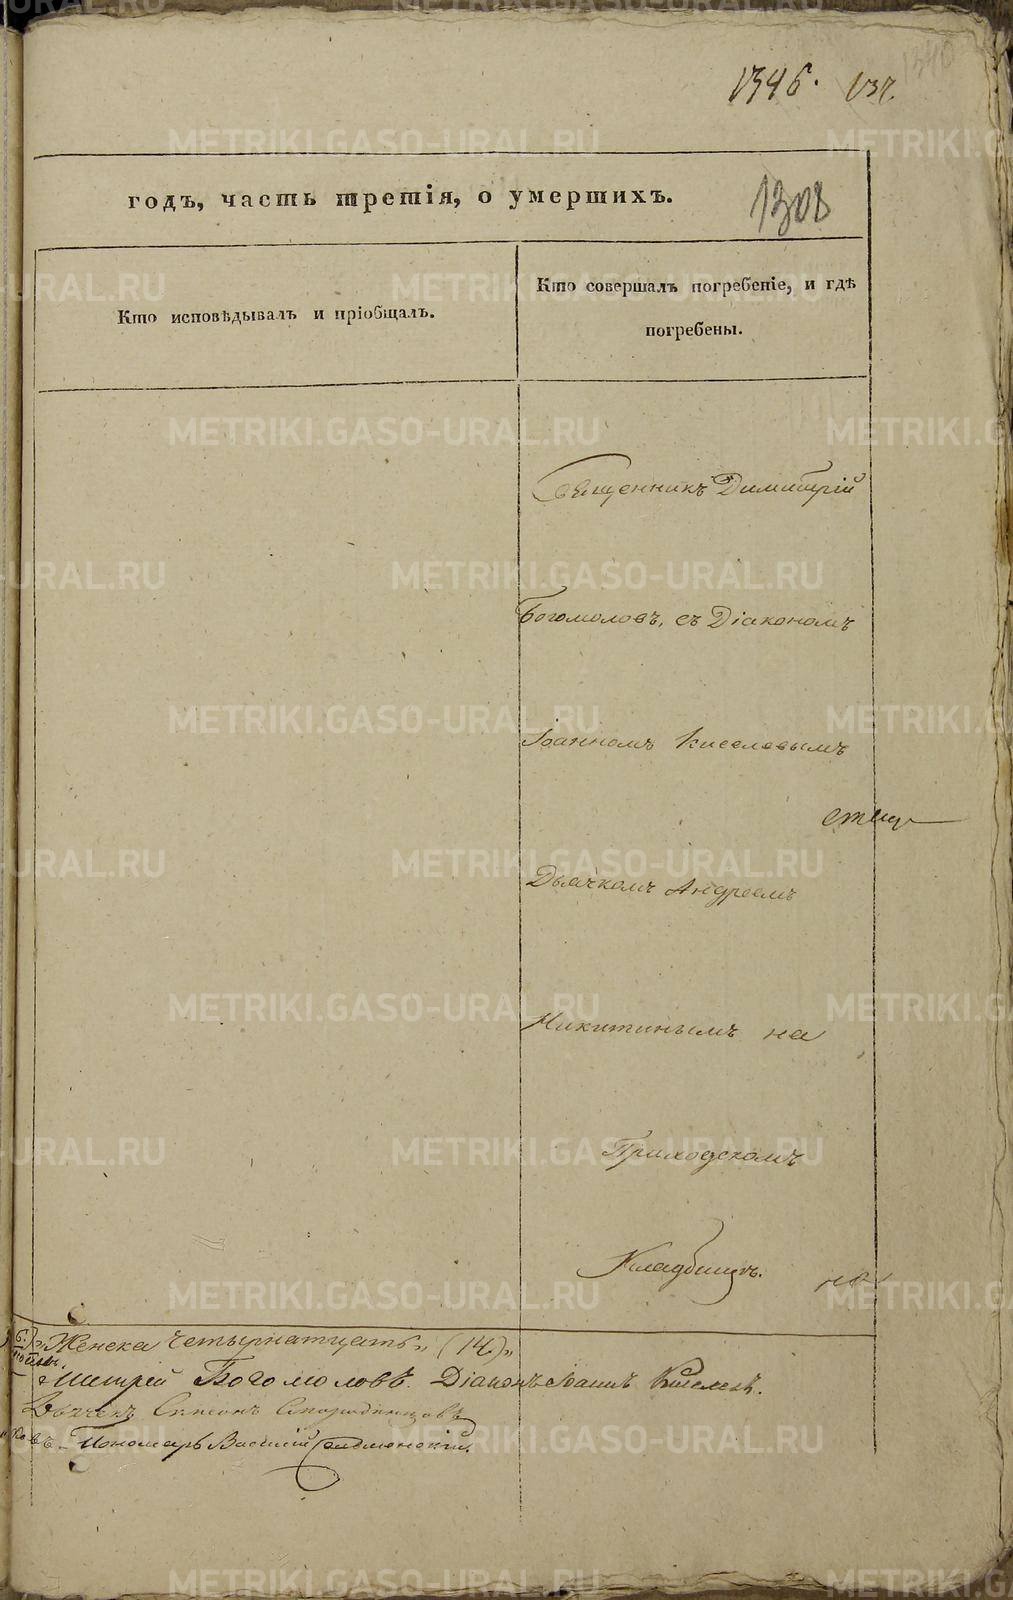 1346. 137.
1340
годъ, часть третія, о умершихъ.
1308
Кто исповѣдывалъ и пріобщалъ.
Кто совершалъ погребеніе, и гдѣ
погребены.
Священникъ Димитрій
Богомоловъ, съ Діакономъ
Іоанномъ Киселевымъ
Дьячкомъ Андреемъ
Никитинымъ на
Приходскомъ
Кладбищѣ.
Женска четырнатцать (14)
митрей Богомоловъ. Діаконъ Іоаннъ Киселевъ.
Дьячекъ
Пономарь Василій
METRIKI.GASO-URAL.RU